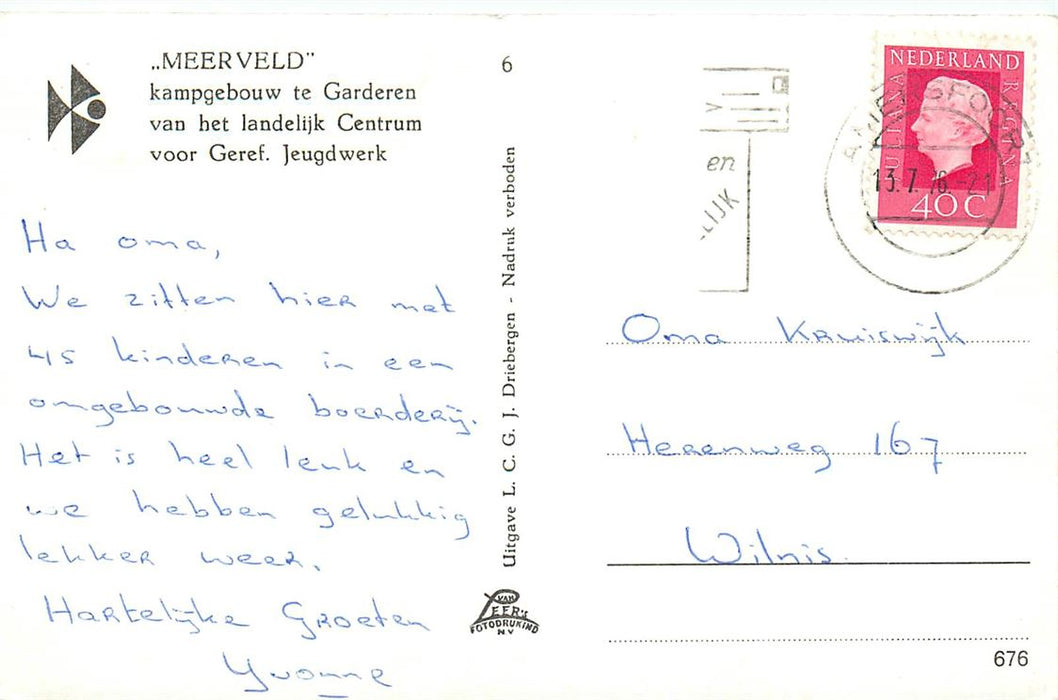 „MEERVELD”
kampgebouw te Garderen
van het landelijk Centrum
voor Geref. Jeugdwerk
Ha oma,
We zitten hier met
45 kinderen in een
omgebouwde boerderij.
Het is heel leuk en
we hebben gelukkig
lekker weer.
Hartelijke Groeten
Yvonne
6
Uitgave L. C. G. J. Driebergen - Nadruk verboden
VAN
LEER's
FOTODRUKIND
NV
V
en
LIJK
NEDERLAND
JULIANA
REGINA
40 C
AMERSFOORT
13.7.76.-21
Oma Kruiswijk
Herenweg 167
Wilnis.
676